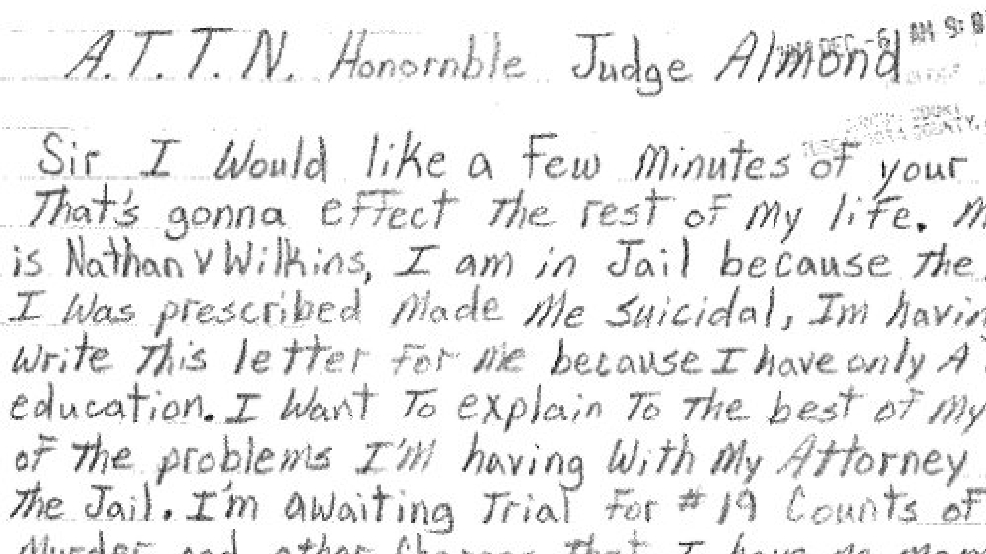 A.T.T.N. Honornble Judge Almond
DEC -6 AM 9:
Sir I Would like a Few Minutes of your
That's gonna eFFect The rest oF My liFe. M
is Nathan v Wilkins, I am in Jail because The
I Was prescribed Made Me Suicidal, Im havin
Write This letter For Me because I have only A
education. I Want To explain To The best of My
oF The problems I'M having With My Attorney
The Jail. I'm awaiting Trial For #19 Counts oF
Murder and other Charges that I have no